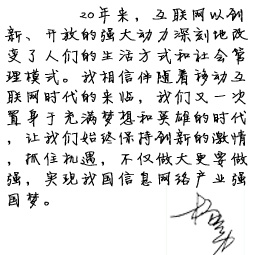 20年来，互联网以创
新、开放的强大动力深刻地改
变了人们的生活方式和社会管
理模式。我相信伴随着移动互
联网时代的来临，我们又一次
置身于充满梦想和英雄的时代
，让我们始终保持创新的激情
，抓住机遇，不仅做大更要做
强，实现我国信息网络产业强
国梦。